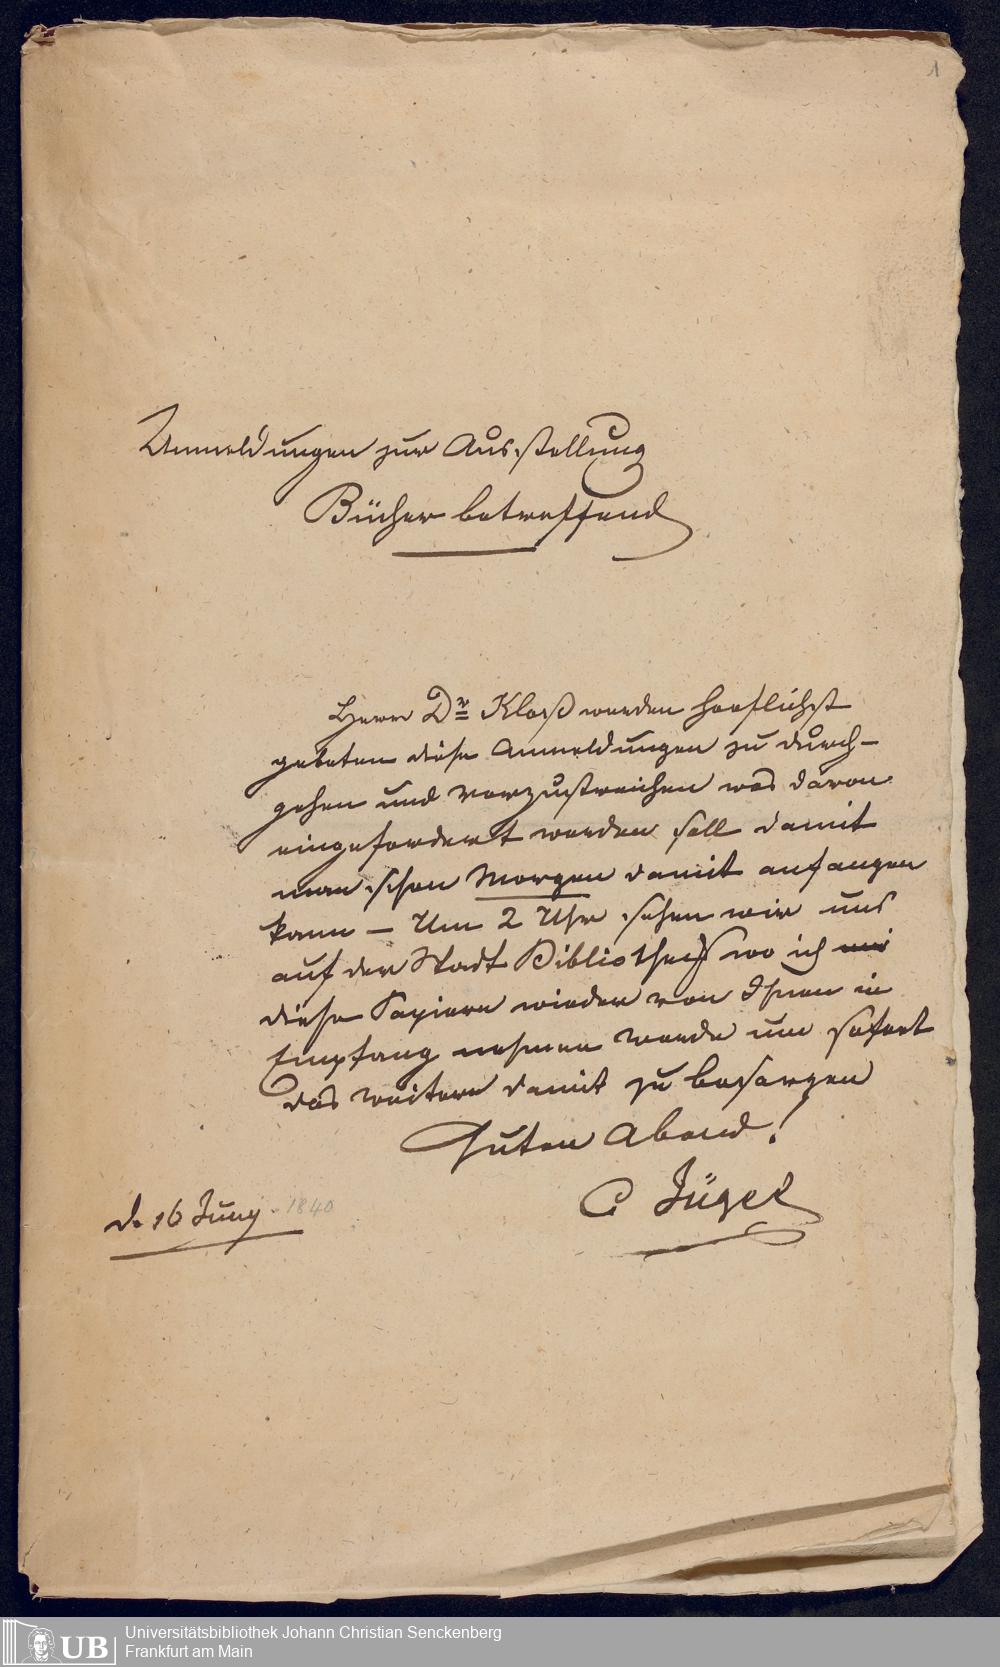 1
Anmeldungen zur Ausstellung
Bücher betreffend
Herrn Dr Kloß werden hoeflichst
gebeten diese Anmeldungen zu durch-
gehen und vorzustreichen was davon
eingefordert werden soll damit
man schon Morgen damit anfangen
kann – Um 2 Uhr sehen wir uns
auf der Stadt Bibliothek wo ich
diese Papiere wieder von Ihnen in
Empfang nehmen werde um sofort
das weitere damit zu besorgen
Guten Abend!
C Jügel
d. 16 Juny 1840
UB
Universitätsbibliothek Johann Christian Senckenberg
Frankfurt am Main